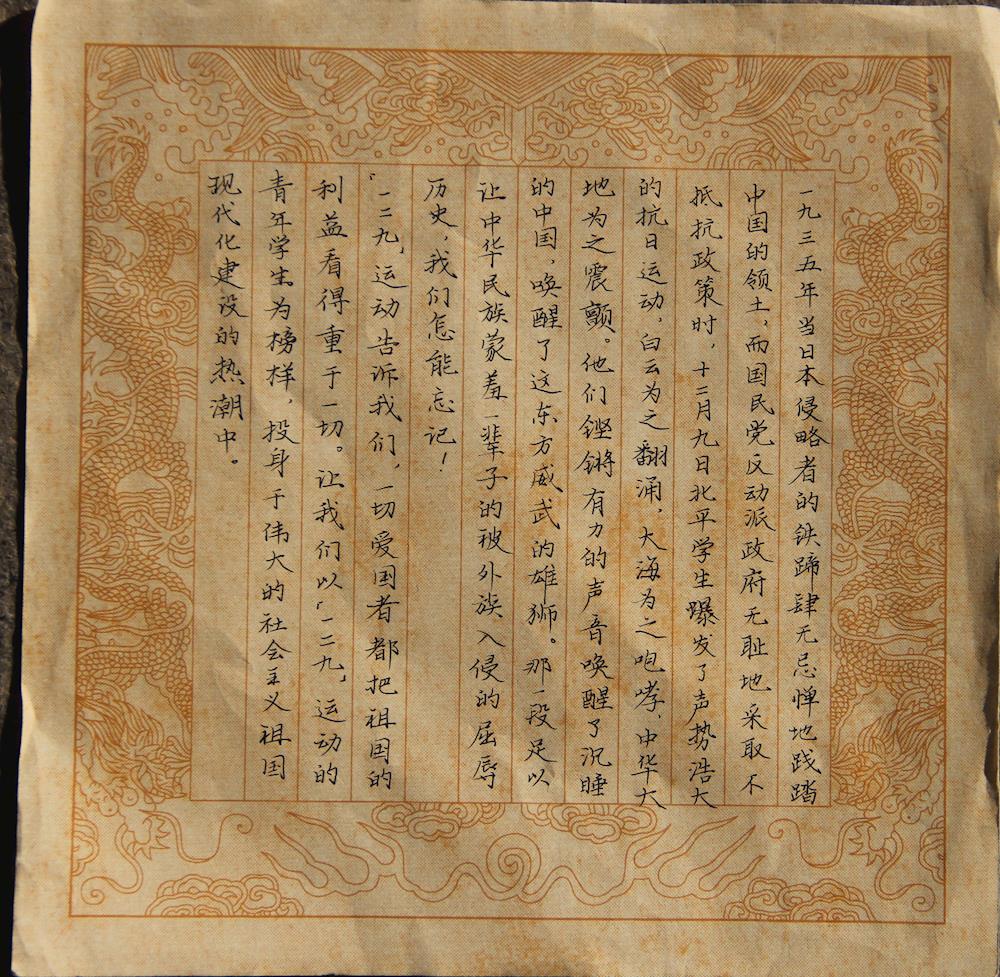 一九三五年当日本侵略者的铁蹄肆无忌惮地践踏
中国的领土，而国民党反动派政府无耻地采取不
抵抗政策时，十二月九日北平学生爆发了声势浩大
的抗日运动，白云为之翻涌，大海为之咆哮，中华大
地为之震颤。他们铿锵有力的声音唤醒了沉睡
的中国，唤醒了这东方威武的雄狮。那一段足以
让中华民族蒙羞一辈子的被外族入侵的屈辱
历史，我们怎能忘记！
“一二九”运动告诉我们，一切爱国者都把祖国的
利益看得重于一切。让我们以“一二九”运动的
青年学生为榜样，投身于伟大的社会主义祖国
现代化建设的热潮中。